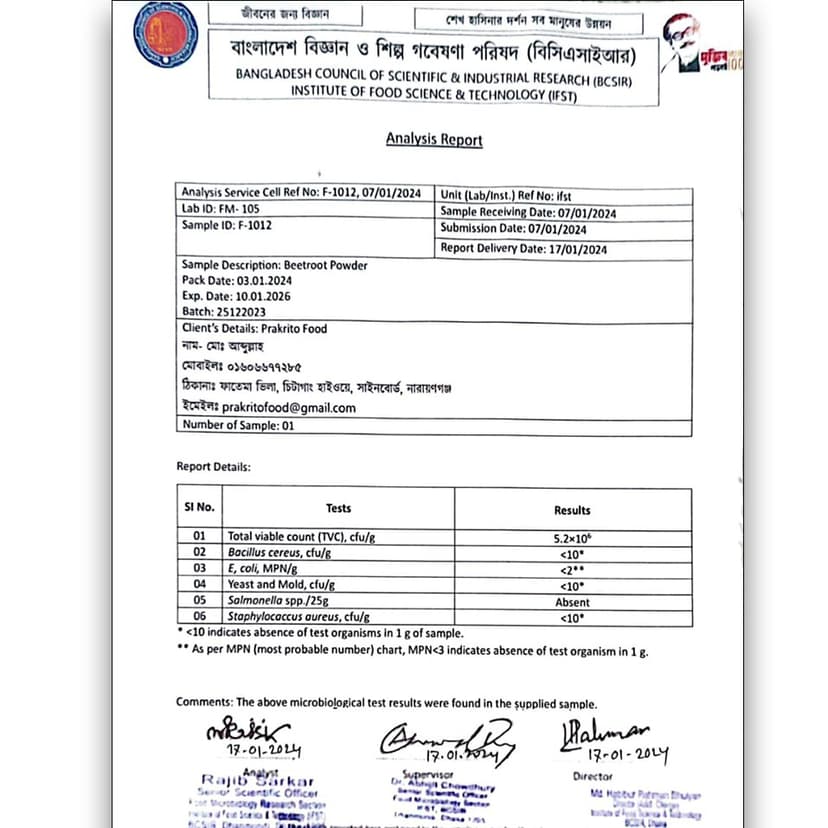 জীবনের জন্য বিজ্ঞান
শেখ হাসিনার দর্শন সব মানুষের উন্নয়ন
বাংলাদেশ বিজ্ঞান ও শিল্প গবেষণা পরিষদ (বিসিএসআইআর)
BANGLADESH COUNCIL OF SCIENTIFIC & INDUSTRIAL RESEARCH (BCSIR)
INSTITUTE OF FOOD SCIENCE & TECHNOLOGY (IFST)
মুজিব
100
Analysis Report
Analysis Service Cell Ref No: F-1012, 07/01/2024
Unit (Lab/Inst.) Ref No: ifst
Lab ID: FM- 105
Sample Receiving Date: 07/01/2024
Sample ID: F-1012
Submission Date: 07/01/2024
Report Delivery Date: 17/01/2024
Sample Description: Beetroot Powder
Pack Date: 03.01.2024
Exp. Date: 10.01.2026
Batch: 25122023
Client's Details: Prakrito Food
নাম- মোঃ আব্দুল্লাহ
মোবাইলঃ ০১৬০৬৬৭৭২৮৫
ঠিকানাঃ ফাতেমা ভিলা, চিটাগাং হাইওয়ে, সাইনবোর্ড, নারায়ণগঞ্জ
ইমেইলঃ prakritofood@gmail.com
Number of Sample: 01
Report Details:
SI No. Tests Results
01 Total viable count (TVC), cfu/g 5.2×10⁶
02 Bacillus cereus, cfu/g <10*
03 E, coli, MPN/g <2**
04 Yeast and Mold, cfu/g <10*
05 Salmonella spp./25g Absent
06 Staphylococcus aureus, cfu/g <10*
* <10 indicates absence of test organisms in 1 g of sample.
** As per MPN (most probable number) chart, MPN<3 indicates absence of test organism in 1 g.
Comments: The above microbiological test results were found in the supplied sample.
17-01-2024
17.01.2024
17-01-2024
Analyst
Rajib Sarkar
Senior Scientific Officer
Food Microbiology Research Section
Supervisor
Dr. Abhijit Chowdhury
Senior Scientific Officer
Food Microbiology Section
IFST, BCSIR
Director
Md. Habibur Rahman Bhuiyan
Institute of Food Science & Technology
BCSIR, Dhaka